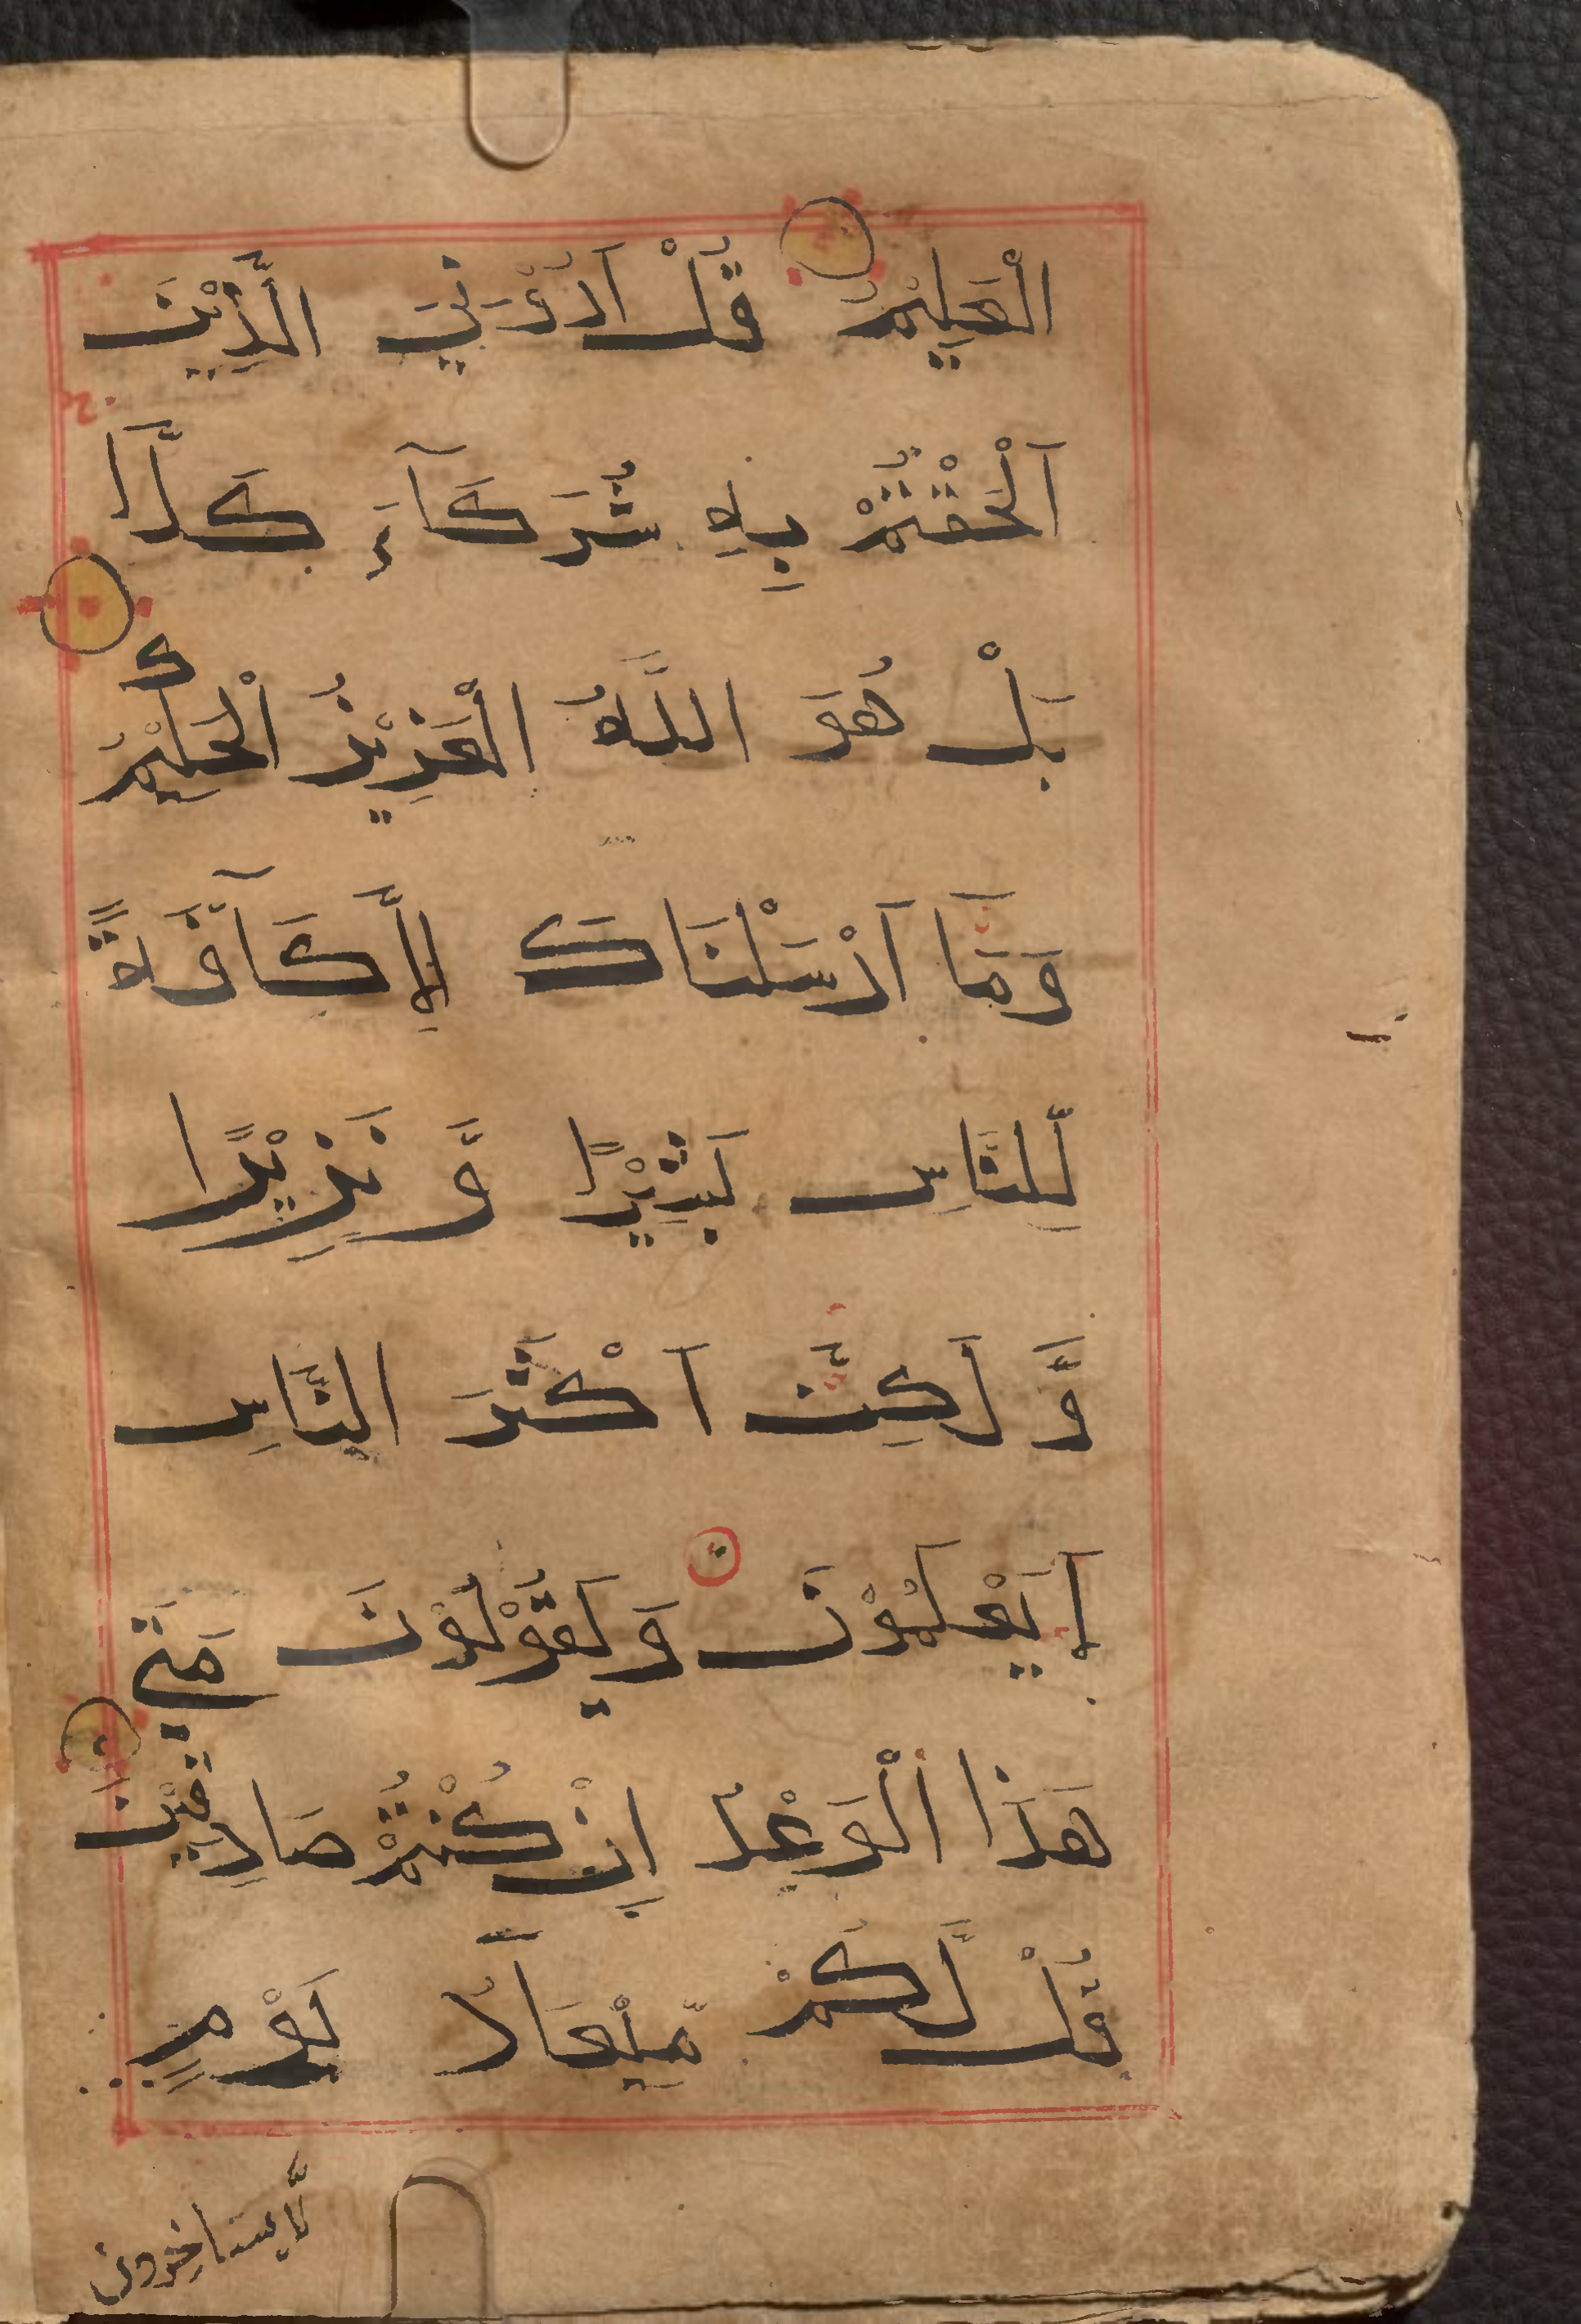 الْعَلِيْمُ قُلْ اَرُوْنِيَ الَّذِيْنَ
اَلْحَقْتُمْ بِهِ شُرَكَآءَ كَلَّا
بَلْ هُوَ اللَّهُ الْعَزِيْزُ الْحَكِيْمُ
وَمَا اَرْسَلْنَاكَ اِلَّا كَآفَّةً
لِّلنَّاسِ بَشِيْرًا وَّ نَذِيْرًا
وَّ لَكِنَّ اَكْثَرَ النَّاسِ
لَا يَعْلَمُوْنَ وَ يَقُوْلُوْنَ مَتَى
هَذَا الْوَعْدُ اِنْ كُنْتُمْ صَادِقِيْنَ
قُلْ لَّكُمْ مِّيْعَادُ يَوْمٍ
لَّا يستاخرون